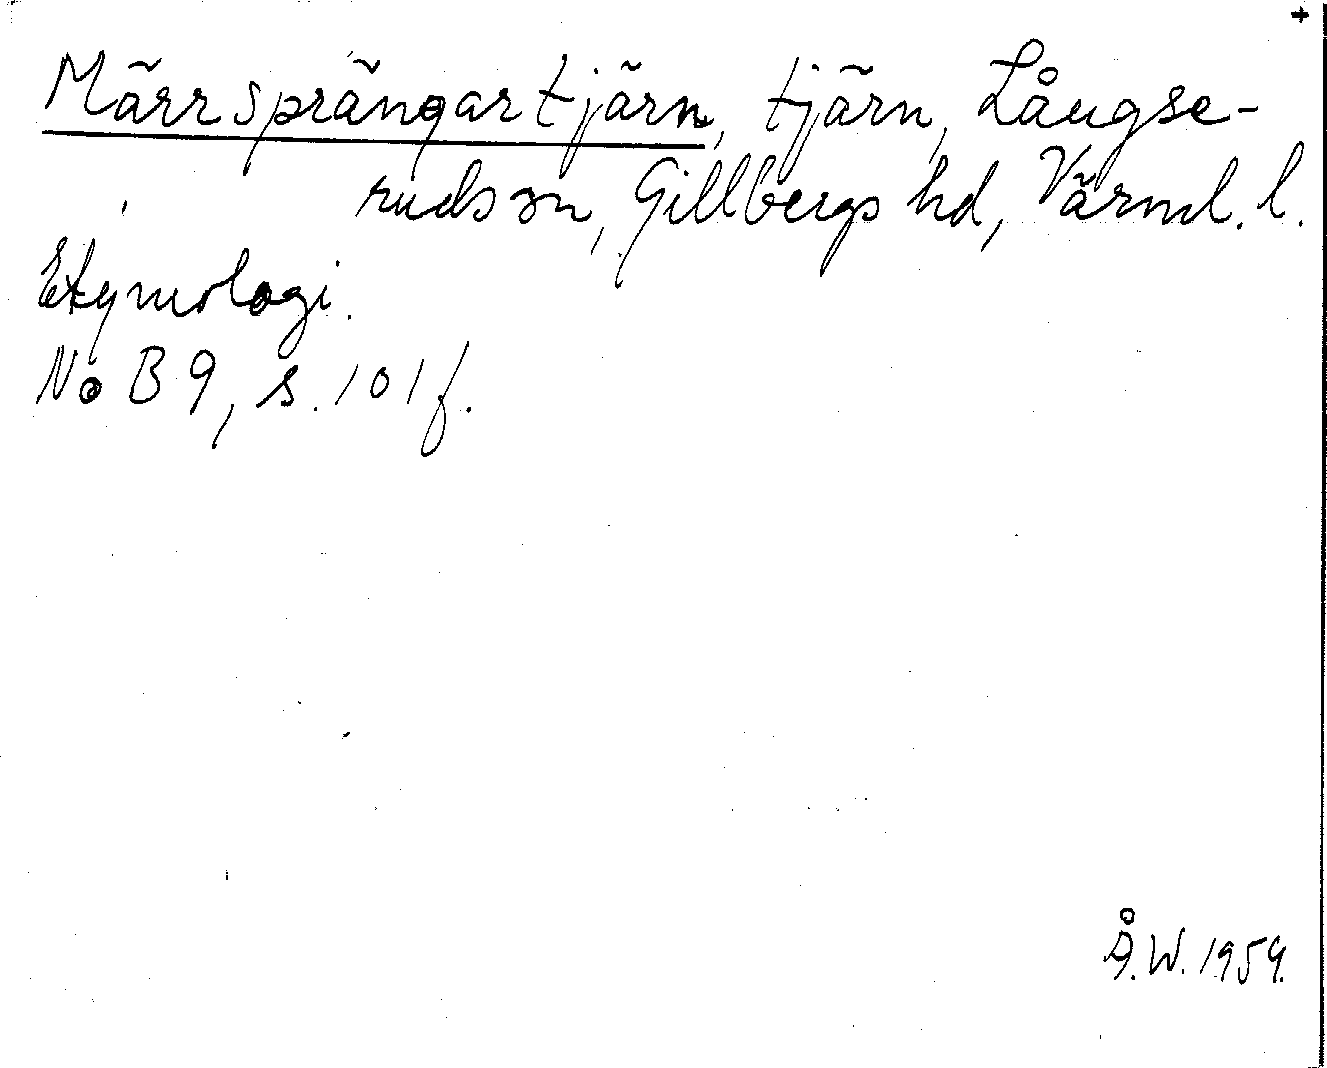 +
Märrsprängartjärn, tjärn, Långse-
ruds sn, Gillbergs hd, Värml. l.
Etymologi.
NoB 9, s. 101 f.
Å.W. 1959.